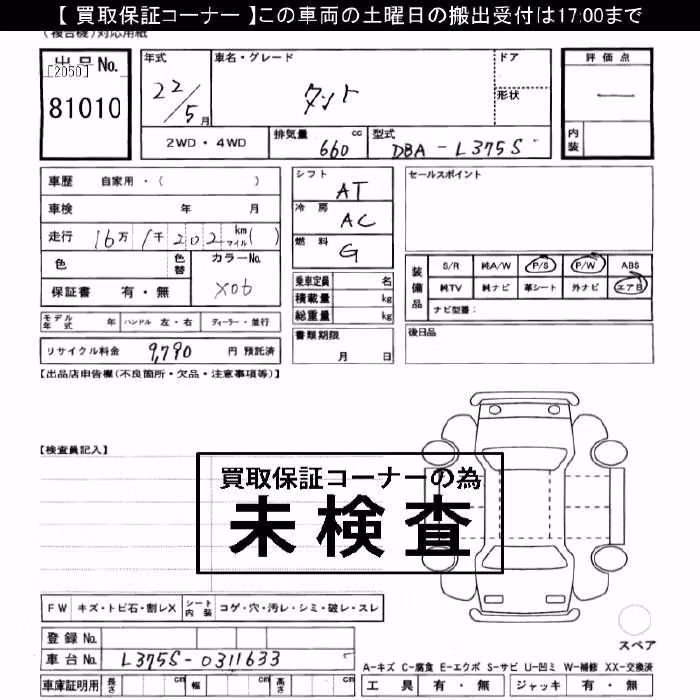 【 買取保証コーナー 】この車両の土曜日の搬出受付は17:00まで
(複合機)対応用紙
出品No.
[2050]
81010
年式
22/5月
車名・グレード
タント
ドア
形状
評価点
—
内装
2WD・4WD
排気量 660 cc
型式 DBA-L375S
車歴 自家用・( )
車検 年 月
走行 16万1千202km( )
マイル
色
色替
カラーNo.
X06
保証書 有・無
モデル年式 年 ハンドル 左・右 ディーラー・並行
リサイクル料金 9,790 円 預託済
シフト
AT
冷房
AC
燃料
G
乗車定員 名
積載量 kg
総重量 kg
書類期限
月 日
セールスポイント
装備品
S/R 純A/W P/S P/W ABS
純TV 純ナビ 革シート 外ナビ エアB
ナビ型番:
後日品
【出品店申告欄(不良箇所・欠品・注意事項等)】
【検査員記入】
買取保証コーナーの為
未検査
FW キズ・トビ石・割レX シート内装 コゲ・穴・汚レ・シミ・破レ・スレ
登録No.
車台No. L375S-0311633
車庫証明用 長さ cm 幅 cm 高さ cm
スペア
A-キズ C-腐食 E-エクボ S-サビ U-凹ミ W-補修 XX-交換済
工具 有・無 ジャッキ 有・無